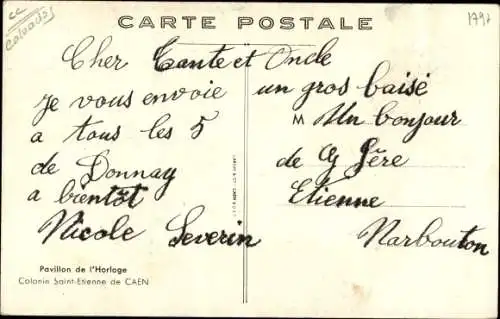 cc
Calvados
CARTE POSTALE
Cher Tante et Oncle
je vous envoie un gros baisé
a tous les 5 M Un bonjour
de Donnay de Père
a bientot Etienne
Nicole Severin Narbouton
Pavillon de l'Horloge
Colonie Saint-Etienne de CAEN